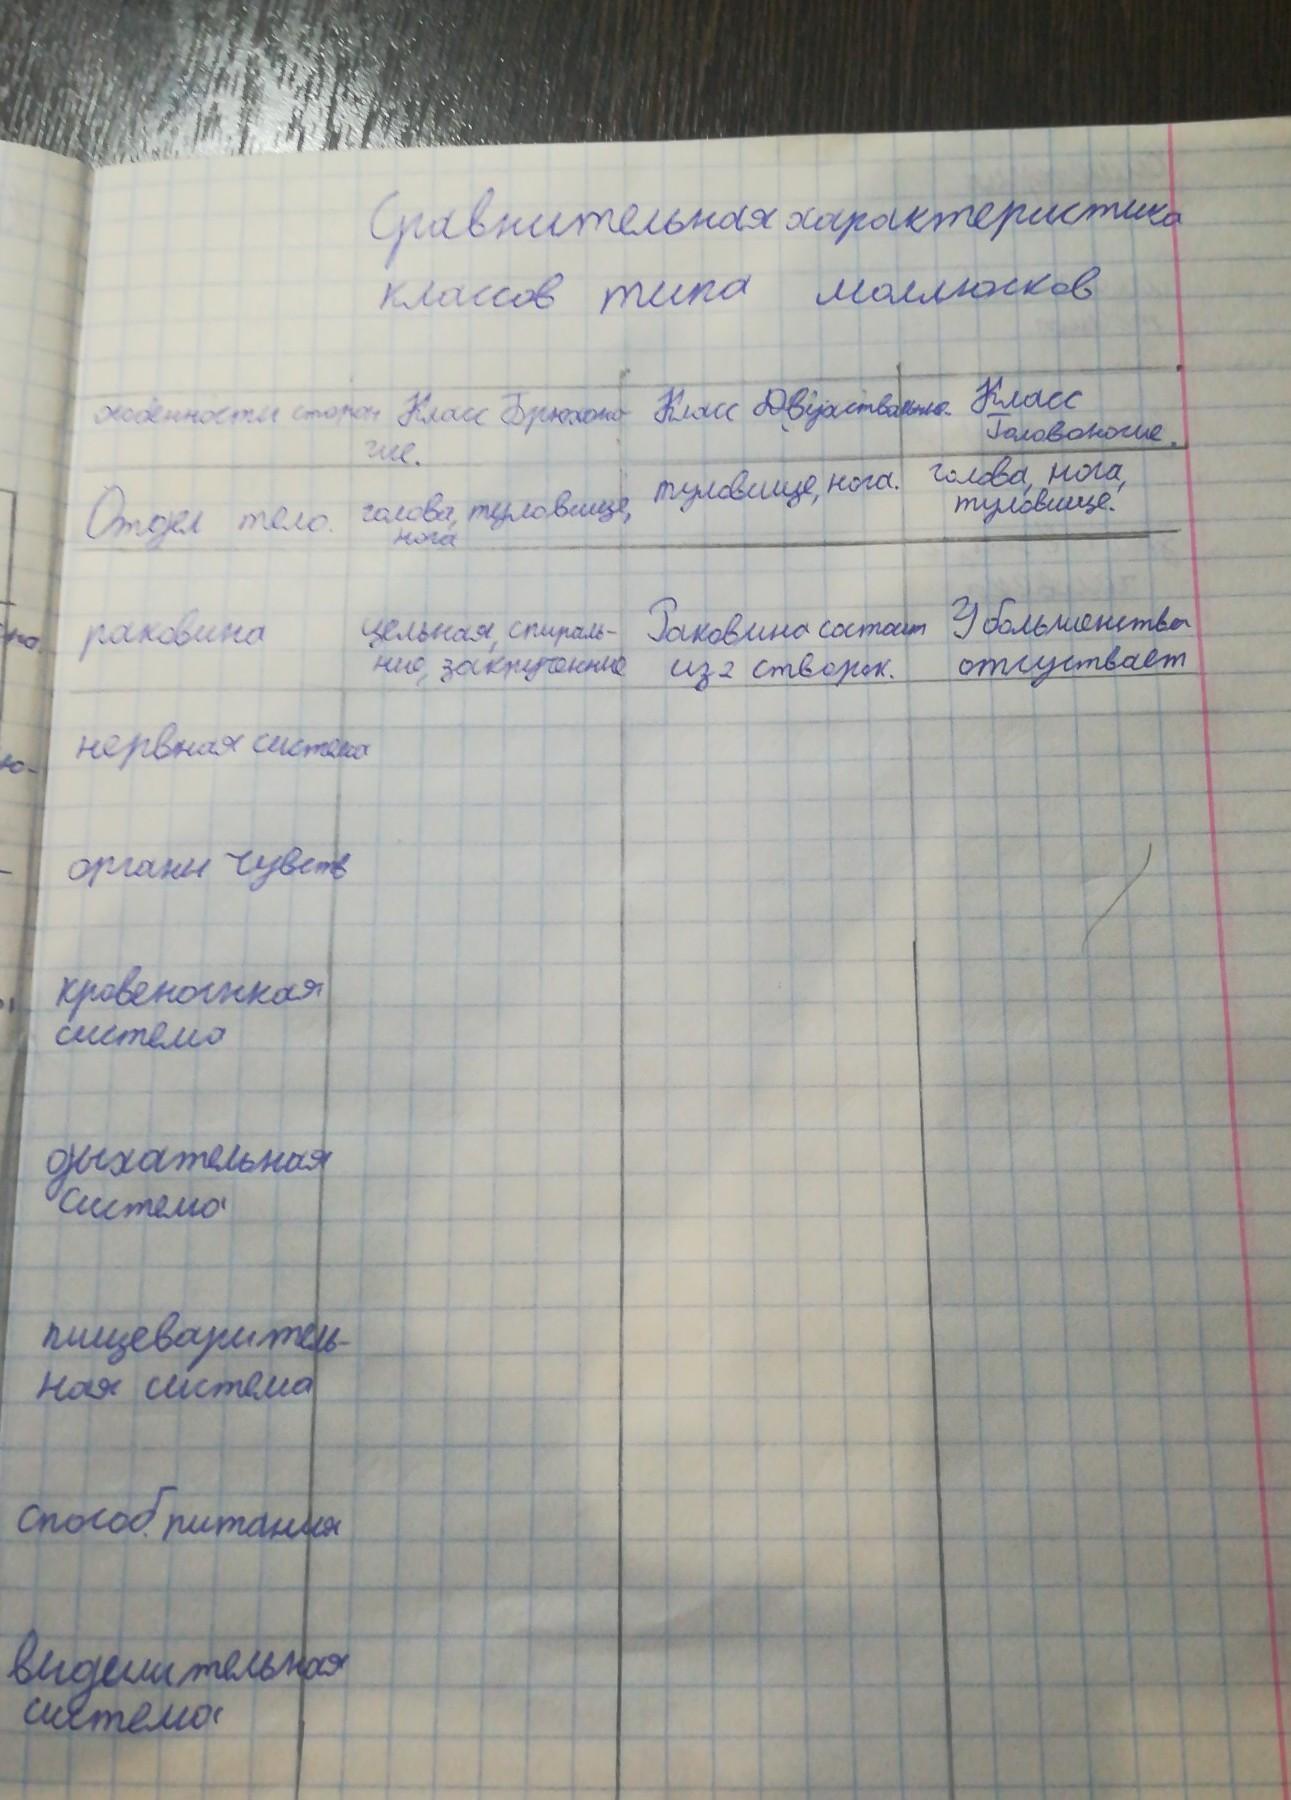 Сравнительная характеристика
классов типа моллюсков
особенности сторон Класс Брюхоно- Класс Двустворчатые. Класс
гие. Головоногие.
Отдел тело. голова, туловище, туловище, нога. голова, нога,
нога туловище.
раковина цельная, спираль- Раковина состоит У большенства
ние, закрученние из 2 створок. отсуствает
нервная система
органи чувств
кровеносная
система
дыхательная
система
пищеваритель-
ная система
способ питания
виделительная
система